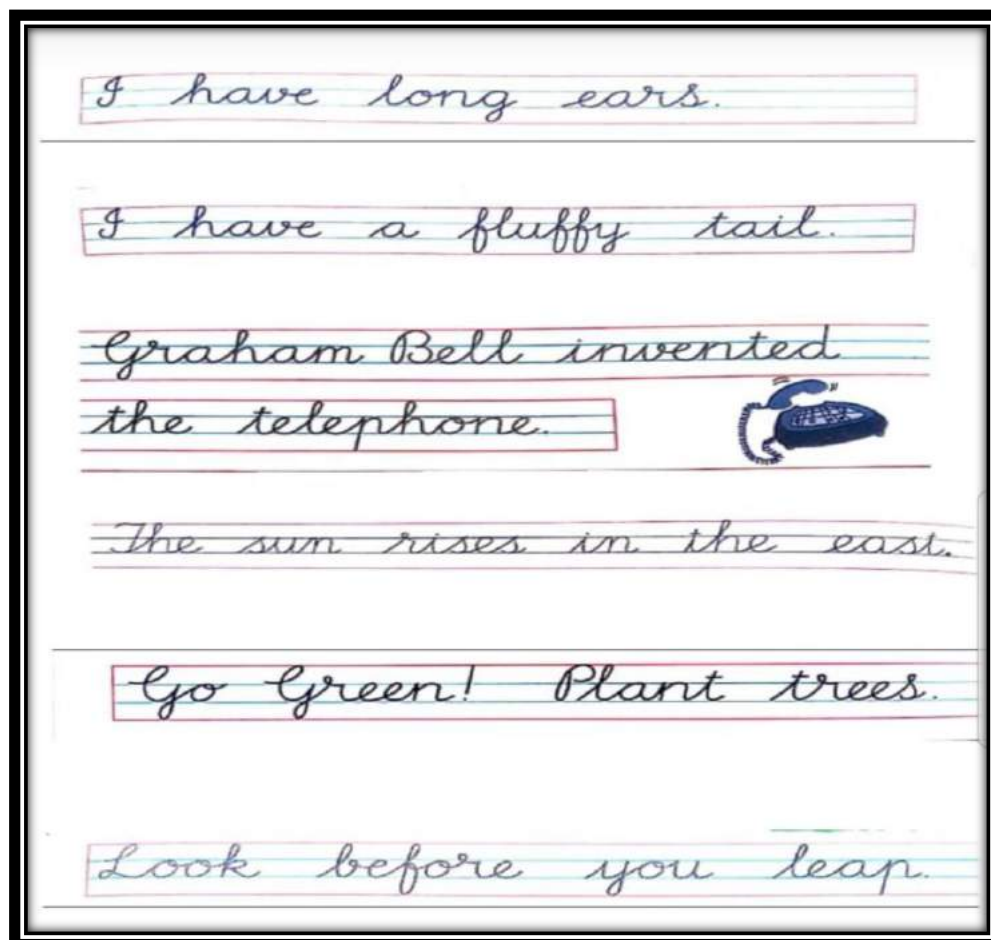 I have long ears.
I have a fluffy tail.
Graham Bell invented
the telephone.
The sun rises in the east.
Go Green! Plant trees.
Look before you leap.